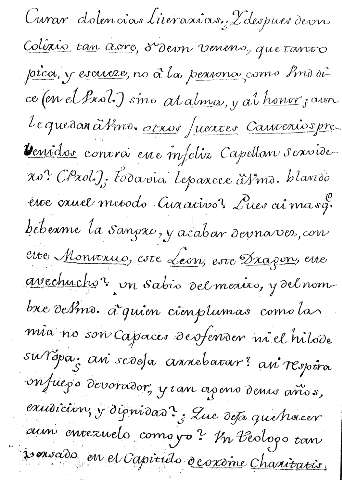 Curar dolencias Literarias; Y despues de un
Colirio tan acre, ò de un veneno, que tanto
pica, y escueze, no â la persona, como Vmd di-
ce (en el Prol.) sino al alma, y al honor; aun
le quedan â Vmd. otros fuertes Cauterios pre-
venidos contra este infeliz Capellan servide-
ro? (Prol.); todavia le parece â Vmd. blando
este cruel metodo Curativo? Pues ai mas q.e
beberme la Sangre, y acabar de una vez, con
este Monstruo, este Leon, este Dragon, este
avechucho? un Sabio del merito, y del nom-
bre de Vmd. â quien cien plumas como la
mia no son Capaces de ofender ni el hilo de
su ropa; asi se deja arrebatar? asi respira
un fuego devorador, y tan ageno de sus años,
erudicion, y dignidad?; Que deja que hacer
a un entezuelo como yo? Un Teologo tan
versado en el Capitulo de ordine Charitatis,